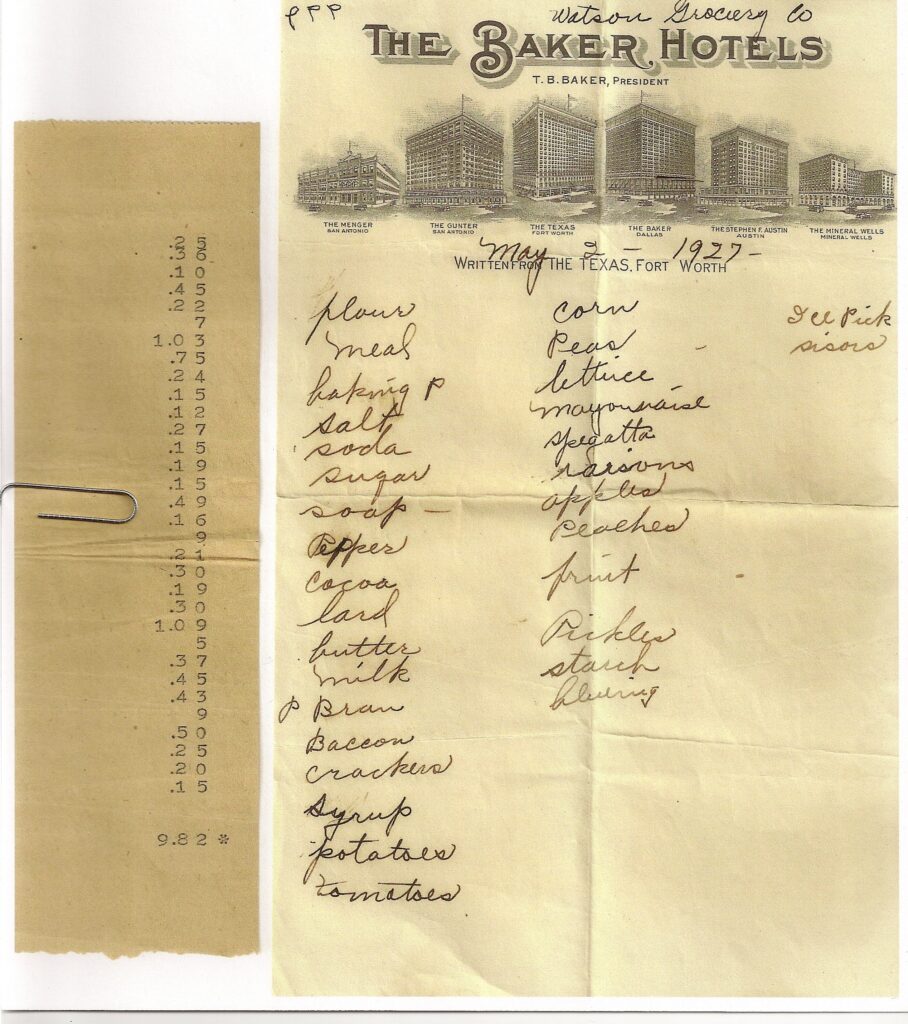 .25
.36
.10
.45
.22
7
1.03
.75
.24
.15
.12
.27
.15
.19
.15
.49
.16
9
.21
.30
.19
.30
1.09
5
.37
.45
.43
9
.50
.25
.20
.15
9.82 *
PPP
Watson Grocery Co
THE BAKER HOTELS
T. B. BAKER, PRESIDENT
THE MENGER
SAN ANTONIO
THE GUNTER
SAN ANTONIO
THE TEXAS
FORT WORTH
THE BAKER
DALLAS
THE STEPHEN F. AUSTIN
AUSTIN
THE MINERAL WELLS
MINERAL WELLS
May 2 - 1927-
WRITTEN FROM THE TEXAS, FORT WORTH
flour
meal
baking P
salt
soda
sugar
soap -
Pepper
cocoa
lard
butter
milk
P Bran
Baccon
crackers
syrup
potatoes
tomatoes
corn
Peas -
lettuce
mayonnaise
spegatta
raisons
apples
Peaches
fruit
Pickles
starch
blueing
Ice Pick
sisors